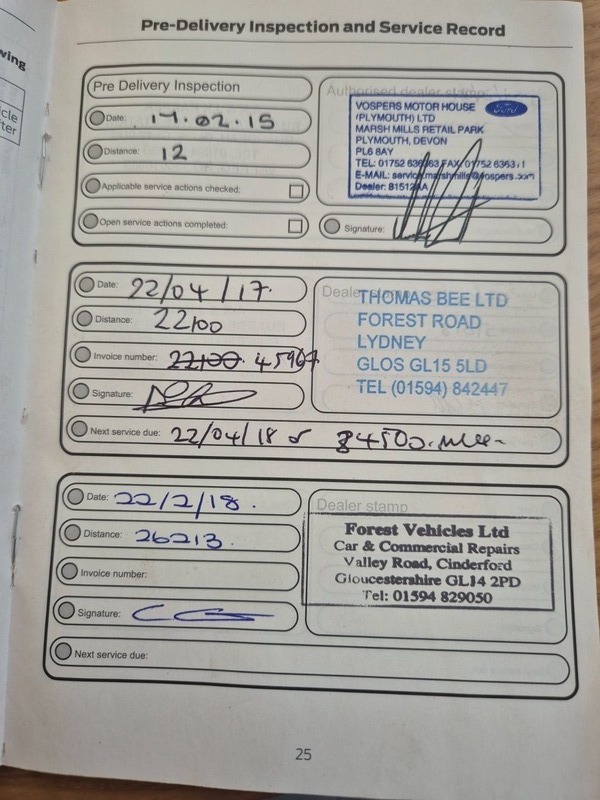 wing
cle
fter
Pre-Delivery Inspection and Service Record
Pre Delivery Inspection
Date: 17.02.15
Distance: 12
Applicable service actions checked:
Open service actions completed:
Authorised dealer stamp:
VOSPERS MOTOR HOUSE
Ford
(PLYMOUTH) LTD
MARSH MILLS RETAIL PARK
PLYMOUTH, DEVON
PL6 8AY
TEL: 01752 636363 FAX: 01752 6363
E-MAIL: service.marshmills@vospers.com
Dealer: 81512AA
Signature:
Date: 22/04/17.
Distance: 22100
Invoice number: 22100. 45967
Signature:
Next service due: 22/04/18 or 34500. miles
Dealer
THOMAS BEE LTD
FOREST ROAD
LYDNEY
GLOS GL15 5LD
TEL (01594) 842447
Date: 22/2/18.
Distance: 26213.
Invoice number:
Signature:
Next service due:
Dealer stamp
Forest Vehicles Ltd
Car & Commercial Repairs
Valley Road, Cinderford
Gloucestershire GL14 2PD
Tel: 01594 829050
25